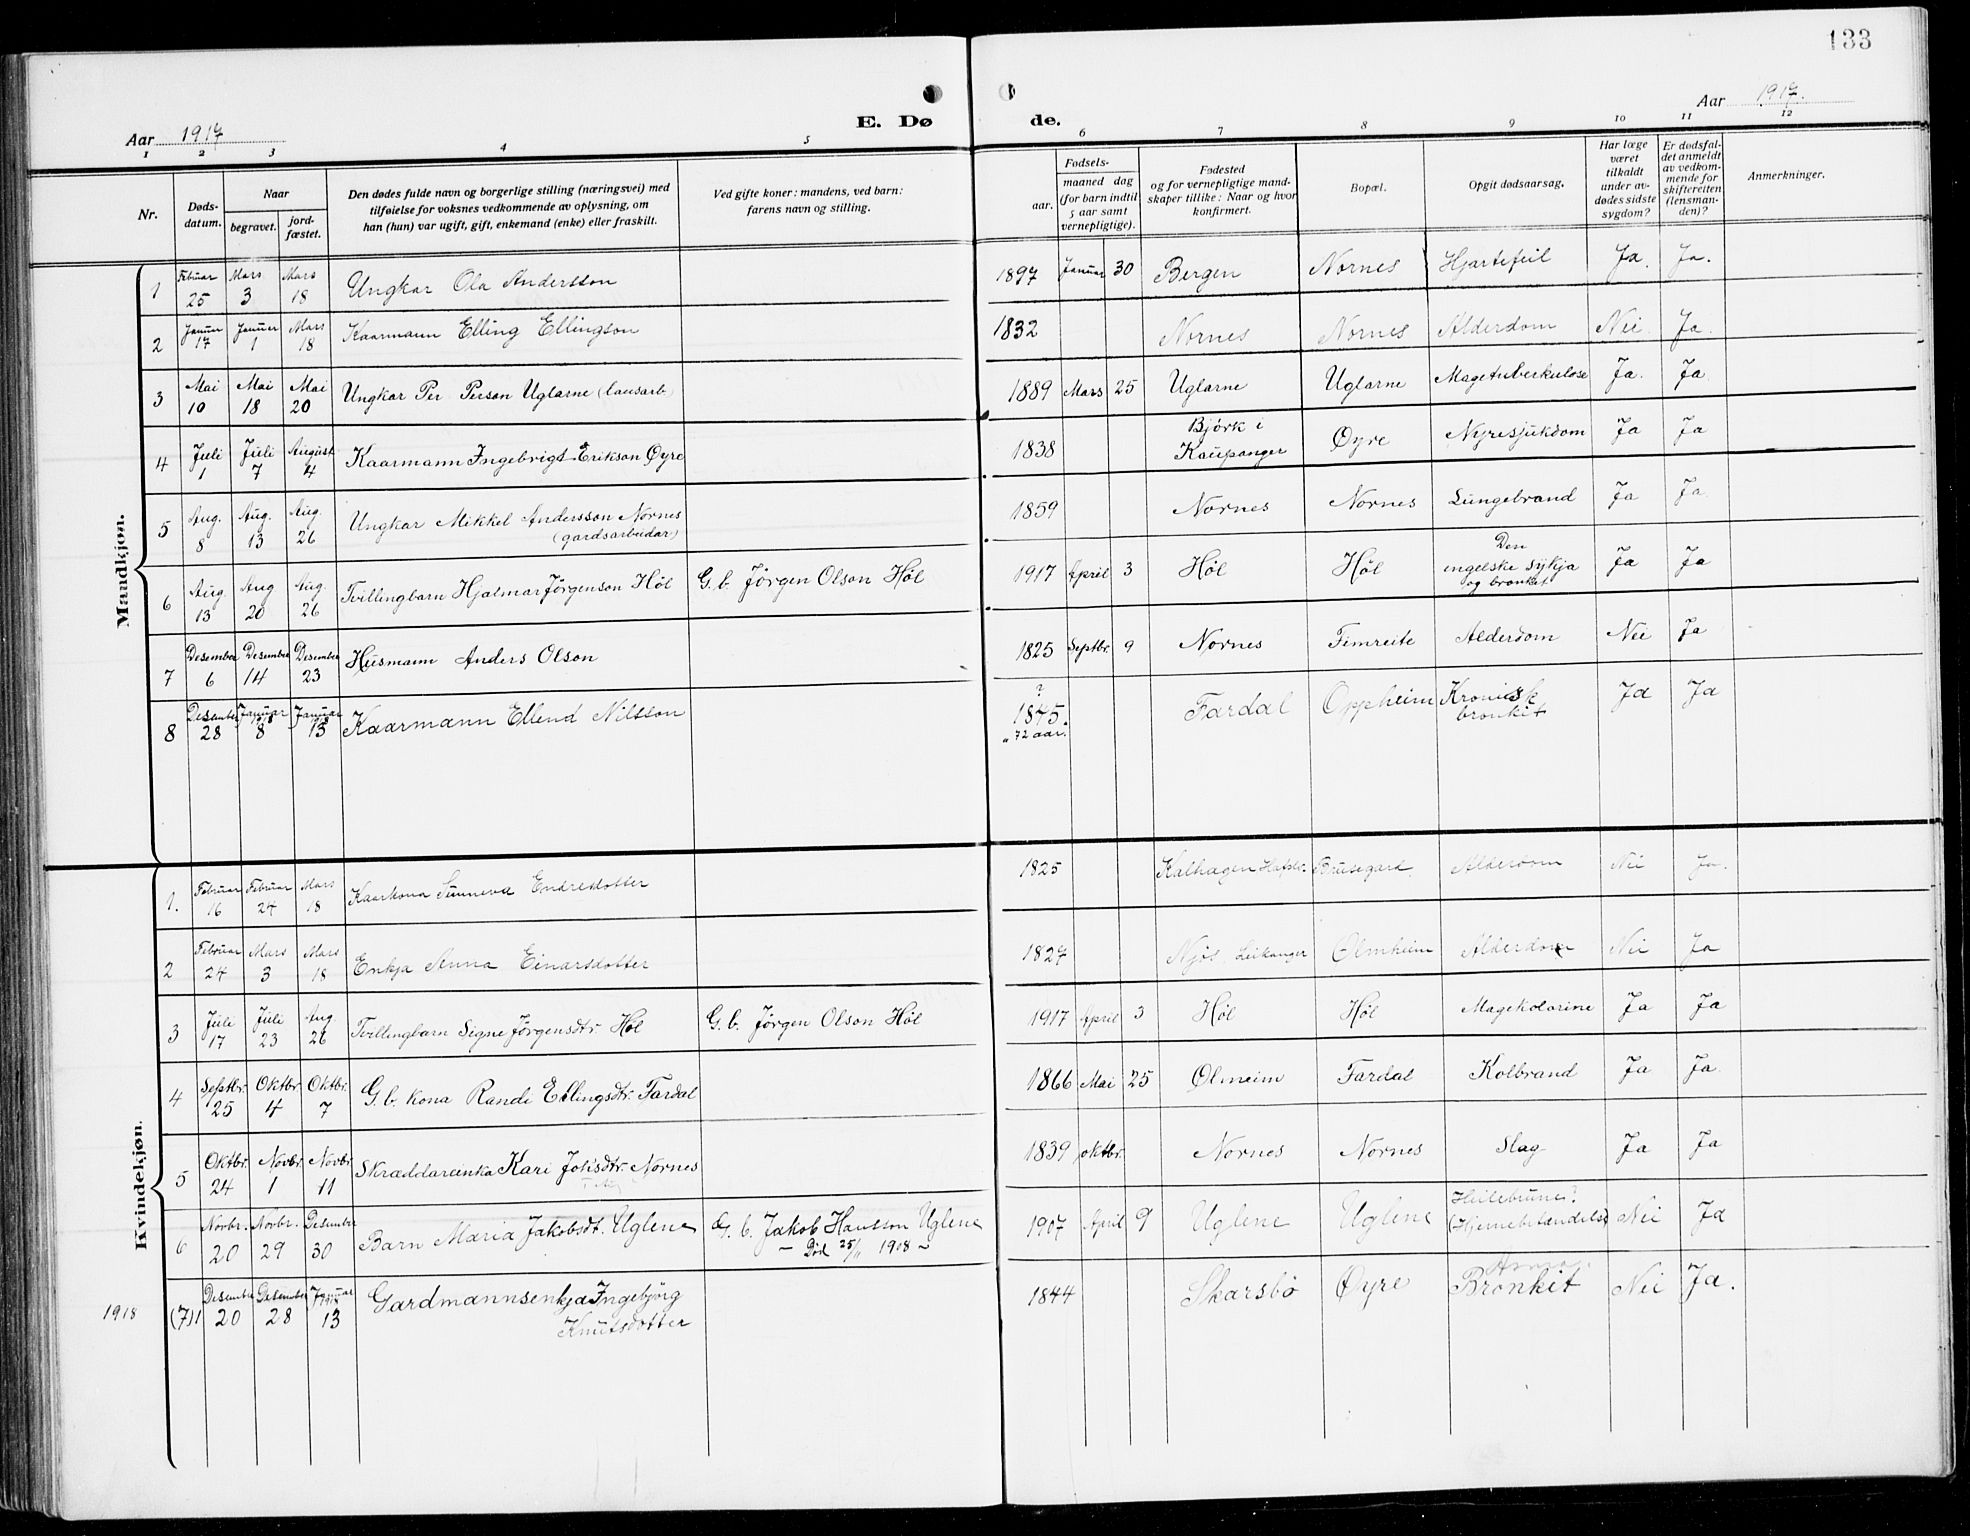 133
Aar 1917
E. Dø
de.
Aar 1917.
1 2 3 4 5 6 7 8 9 10 11 12
Nr.
Døds-
datum.
Naar
begravet.
jord-
fæstet.
Den dødes fulde navn og borgerlige stilling (næringsvei) med
tilføielse for voksnes vedkommende av oplysning, om
han (hun) var ugift, gift, enkemand (enke) eller fraskilt.
Ved gifte koner: mandens, ved barn:
farens navn og stilling.
Fødsels-
aar.
maaned dag
(for barn indtil
5 aar samt
vernepligtige).
Fødested
og for vernepligtige mand-
skaper tillike: Naar og hvor
konfirmert.
Bopæl.
Opgit dødsaarsag.
Har læge
været
tilkaldt
under av-
dødes sidste
sygdom?
Er dødsfal-
det anmeldt
av vedkom-
mende for
skifteretten
(lensman-
den)?
Anmerkninger.
Mandkjøn.
1 Februar 25 Mars 3 Mars 18 Ungkar Ola Andersson 1897 Januar 30 Bergen Nornes Hjartefeil Ja. Ja.
2 Januar 17 Januar 1 Mars 18 Kaarmann Elling Ellingson 1832 Nornes Nornes Alderdom Nei. Ja.
3 Mai 10 Mai 18 Mai 20 Ungkar Per Person Uglarne (lausarb.) 1889 Mars 25 Uglarne Uglarne Magetuberkulose Ja. Ja
4 Juli 1 Juli 7 August 4 Kaarmann Ingebrigt Erikson Øyre 1838 Bjørk i Kaupanger Øyre Nyresjukdom Ja Ja
5 Aug. 8 Aug. 13 Aug. 26 Ungkar Mikkel Andersson Nornes (gardsarbeidar) 1859 Nornes Nornes Lungebrand Ja Ja
6 Aug. 13 Aug 20 Aug. 26 Tvillingbarn Hjalmar Jørgenson Høl G.b. Jørgen Olson Høl 1917 April 3 Høl Høl Den engelske sykja og bronkit Ja Ja
7 Desember 6 Desember 14 Desember 23 Husmann Anders Olson 1825 Septbr. 9 Nornes Fimreite Alderdom Nei Ja
8 Desember 28 Januar 1918 8 Januar 1918 13 Kaarmann Ellend Nilsson ? 1845. "72 aar. Fardal Oppheim Kronisk bronkit Ja Ja
Kvindekjøn.
1. Februar 16 Februar 24 Mars 18 Kaarkona Sunneva Endresdotter 1825 Kalhagen Hafslo. Brusegard Alderdom Nei Ja.
2 Februar 24 Mars 3 Mars 18 Enkja Anna Einarsdotter 1827 Njøs Leikanger Olmheim Alderdom Nei Ja
3 Juli 17 Juli 23 Aug 26 Tvillingbarn Signe Jørgensdtr. Høl G.b. Jørgen Olson Høl 1917 April 3 Høl Høl Magekolorine Ja Ja
4 Septbr. 25 Oktbr. 4 Oktbr. 7 G.b. kona Randi Ellingsdtr. Fardal 1866 Mai 25 Olmeim Fardal Kolbrand Ja Ja.
5 Oktbr. 24 Novbr. 1 Novbr. 11 Skræddareinka Kari Johsdtr. Nornes 1839 oktbr. Nornes Nornes Slag Ja Ja
6 Novbr. 20 Novbr. 29 Desember 30 Barn Maria Jakobsdt. Uglene G.b. Jakob Hansson Uglene – Død 25/11 1908 – 1907 April 9 Uglene Uglene Heilebrune? (Hjernebetændelse) Nei Ja
1918 (7)1 Desember 20 Desember 28 Januar 1918 13 Gardmannsenkja Ingebjørg Knutsdotter 1844 Skarsbø Øyre Bronkit Nei Ja.